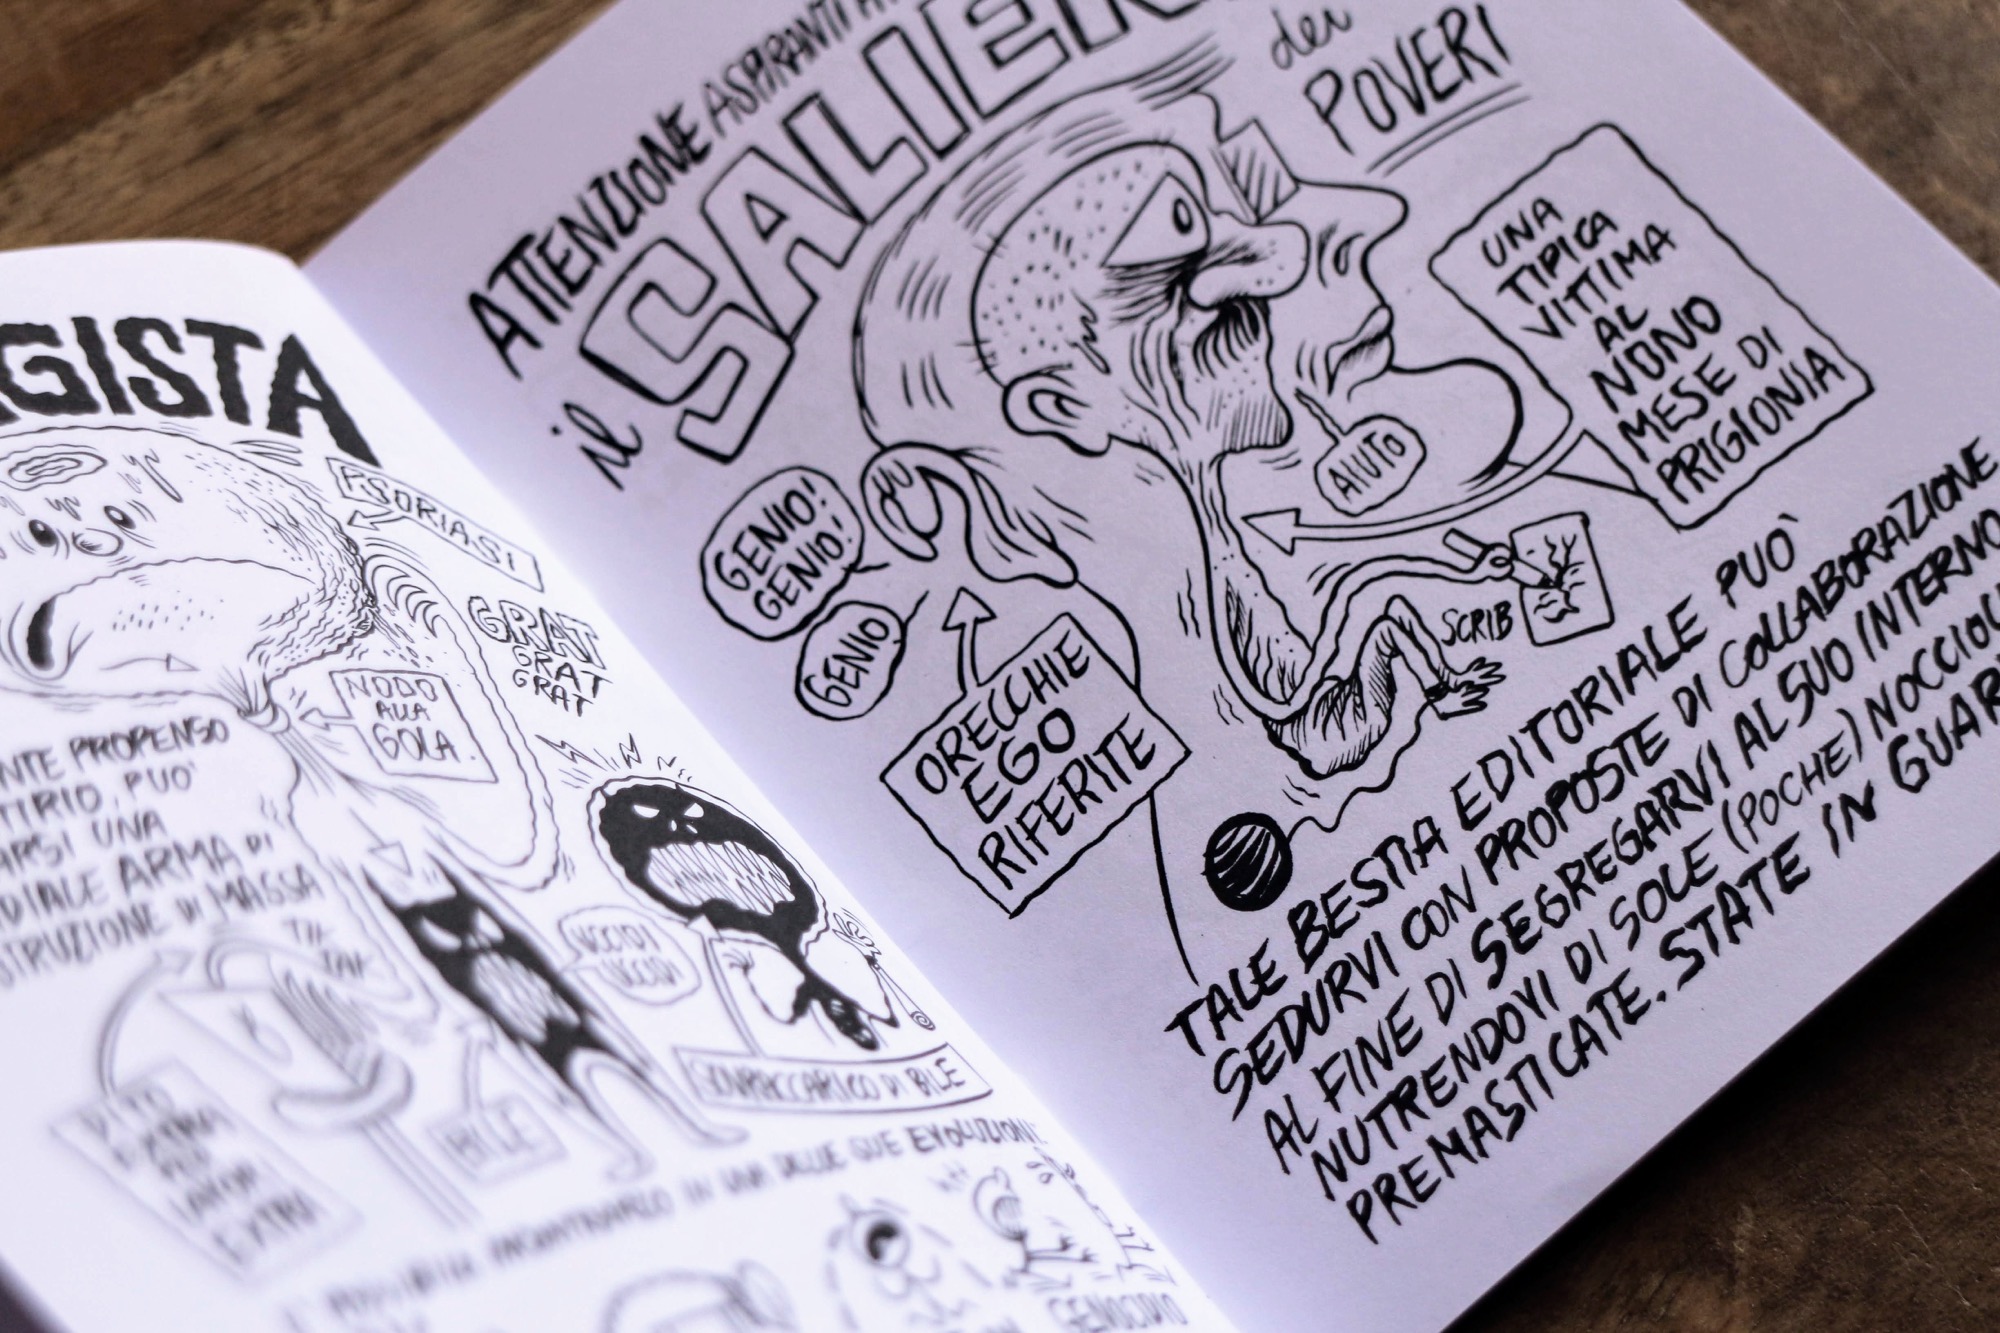 GISTA
PSORIASI
GRAT
GRAT
GRAT
NODO
ALLA
GOLA.
NTE PROPENSO
TIRIO, PUO'
ARSI UNA
DIALE ARMA DI
STRUZIONE DI MASSA
TIK
TAK
UCCIDI
UCCIDI
SOVRACCARICO DI BILE
DITO
EXTRA
PER
LAVORI
EXTRA
BILE
IN UNA DELLE SUE EVOLUZIONI:
GENOCIDIO
ATTENZIONE ASPIRANTI
il SALIERI
dei
POVERI
UNA
TIPICA
VITTIMA
AL
NONO
MESE DI
PRIGIONIA
AIUTO
GENIO!
GENIO!
GENIO
ORECCHIE
EGO
RIFERITE
SCRIB
TALE BESTIA EDITORIALE PUO'
SEDURVI CON PROPOSTE DI COLLABORAZIONE
AL FINE DI SEGREGARVI AL SUO INTERNO
NUTRENDOVI DI SOLE (POCHE) NOCCIOL
PREMASTICATE. STATE IN GUAR